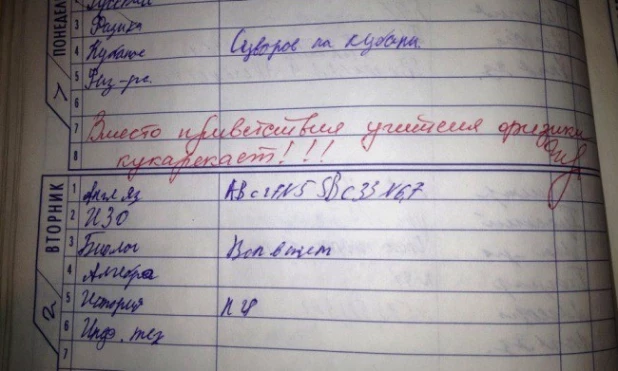 ПОНЕДЕЛ
3 Физика
4 Кубанов Суворов на Кубани
5 Физ-ра
6
7 Вместо приветствия учителя физики
8 кукарекает!!!
ВТОРНИК
1 Англ яз АВ с 27 N5 SB C 33 N6,7
2 ИЗО
3 Биолог
4 Алгебра
5 История п 24
6 Инф. тех
7
2